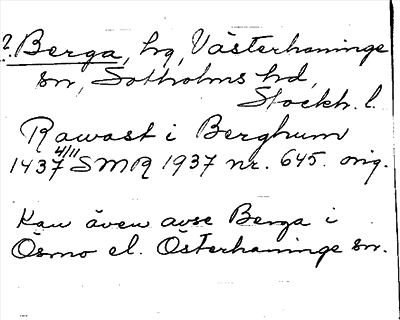 ? Berga, hg, Västerhaninge
sn, Sotholms hd,
Stockh. l.
Rawast i Berghum
1437 4/11 SMR 1937 nr. 645. orig.
Kan även avse Berga i
Ösmo el. Österhaninge sn.